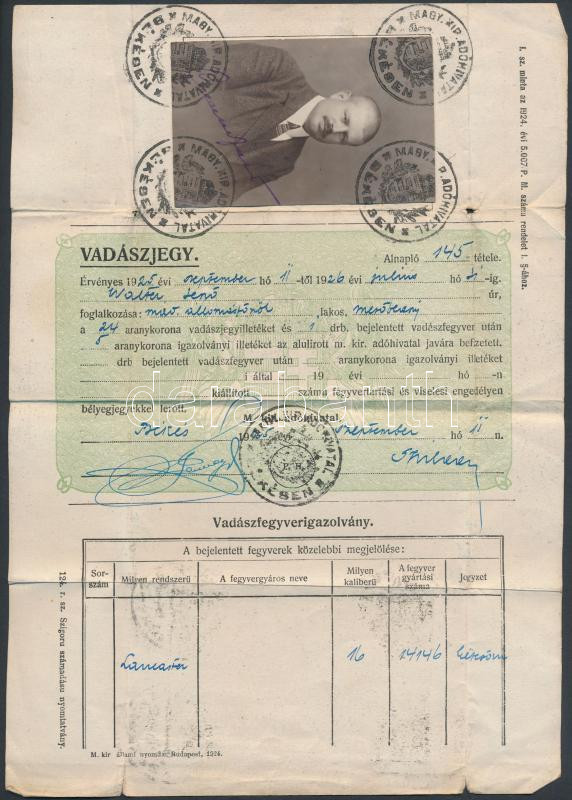 MAGY. KIR. ADÓHIVATAL BÉKÉSEN
MAGY. KIR. ADÓHIVATAL BÉKÉSEN
MAGY. KIR. ADÓHIVATAL BÉKÉSEN
MAGY. KIR. ADÓHIVATAL BÉKÉSEN
I. sz. minta az 1924. évi 5.007 P. M. számu rendelet 1. §-ához.
VADÁSZJEGY.
Alnapló 145 tétele.
Érvényes 1925 évi szeptember hó 11-től 1926 évi julius hó 31-ig.
Walter Jenő úr,
foglalkozása: máv. állomásfőnök, lakos, mezőberény
a 24 aranykorona vadászjegyilletéket és 1 drb. bejelentett vadászfegyver után
5 aranykorona igazolványi illetéket az alulirott m. kir. adóhivatal javára befizetett.
drb bejelentett vadászfegyver után aranykorona igazolványi illetéket
i által 19 évi hó -n
kiállított számu fegyvertartási és viselési engedélyen
bélyegjegyekkel lerótt.
M. kir. adóhivatal.
Békés 1925 szeptember hó 11 n.
P. H.
Vadászfegyverigazolvány.
A bejelentett fegyverek közelebbi megjelölése:
Sor-szám Milyen rendszerű A fegyvergyáros neve Milyen kaliberű A fegyver gyártási száma Jegyzet
Lancaster 16 14146
M. kir. állami nyomda, Budapest, 1924.
124. r. sz. Szigoru számadásu nyomtatvány.
darabanth